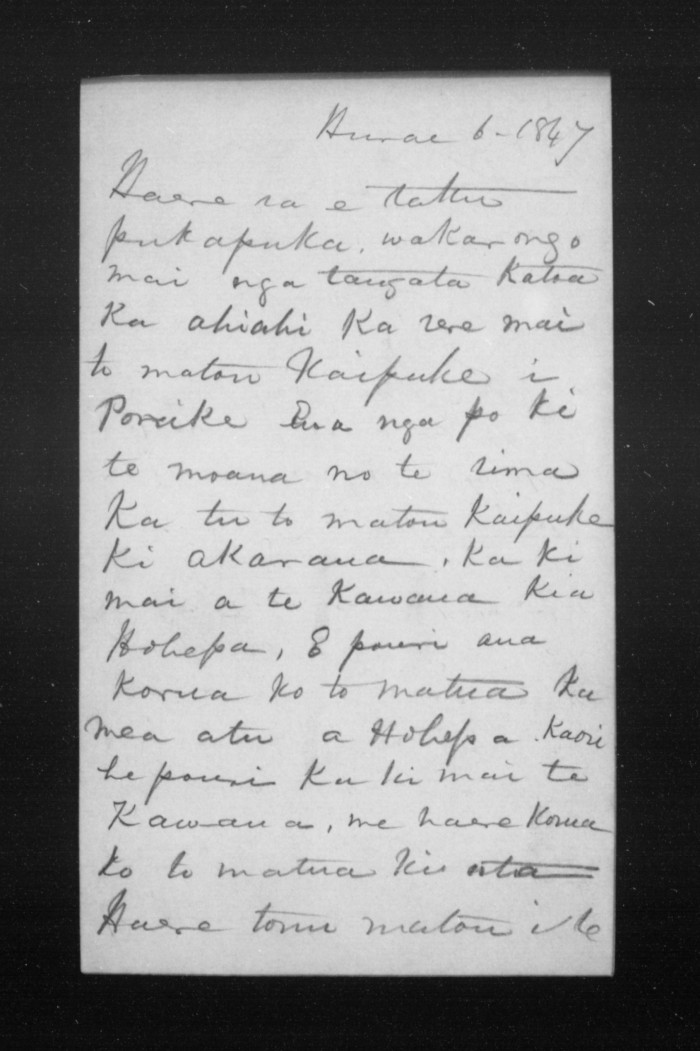 Hurae 6 - 1847
Haere ra e tatu
pukapuka, wakarongo
mai nga tangata Katoa
Ka ahiahi Ka rere mai
to matou Kaipuke i
Poreike Eua nga po ki
te moana no te rima
Ka tu to matou Kaipuke
Ki akarana, Ka ki
mai a te Kawana Kia
Hohepa, E pouri ana
Korua ko to matua Ka
mea atu a Hohepa. Kaori
he pouri Ka ki mai te
Kawana, me haere Korua
Ko to matua ki uta
Haere tonu matou i te